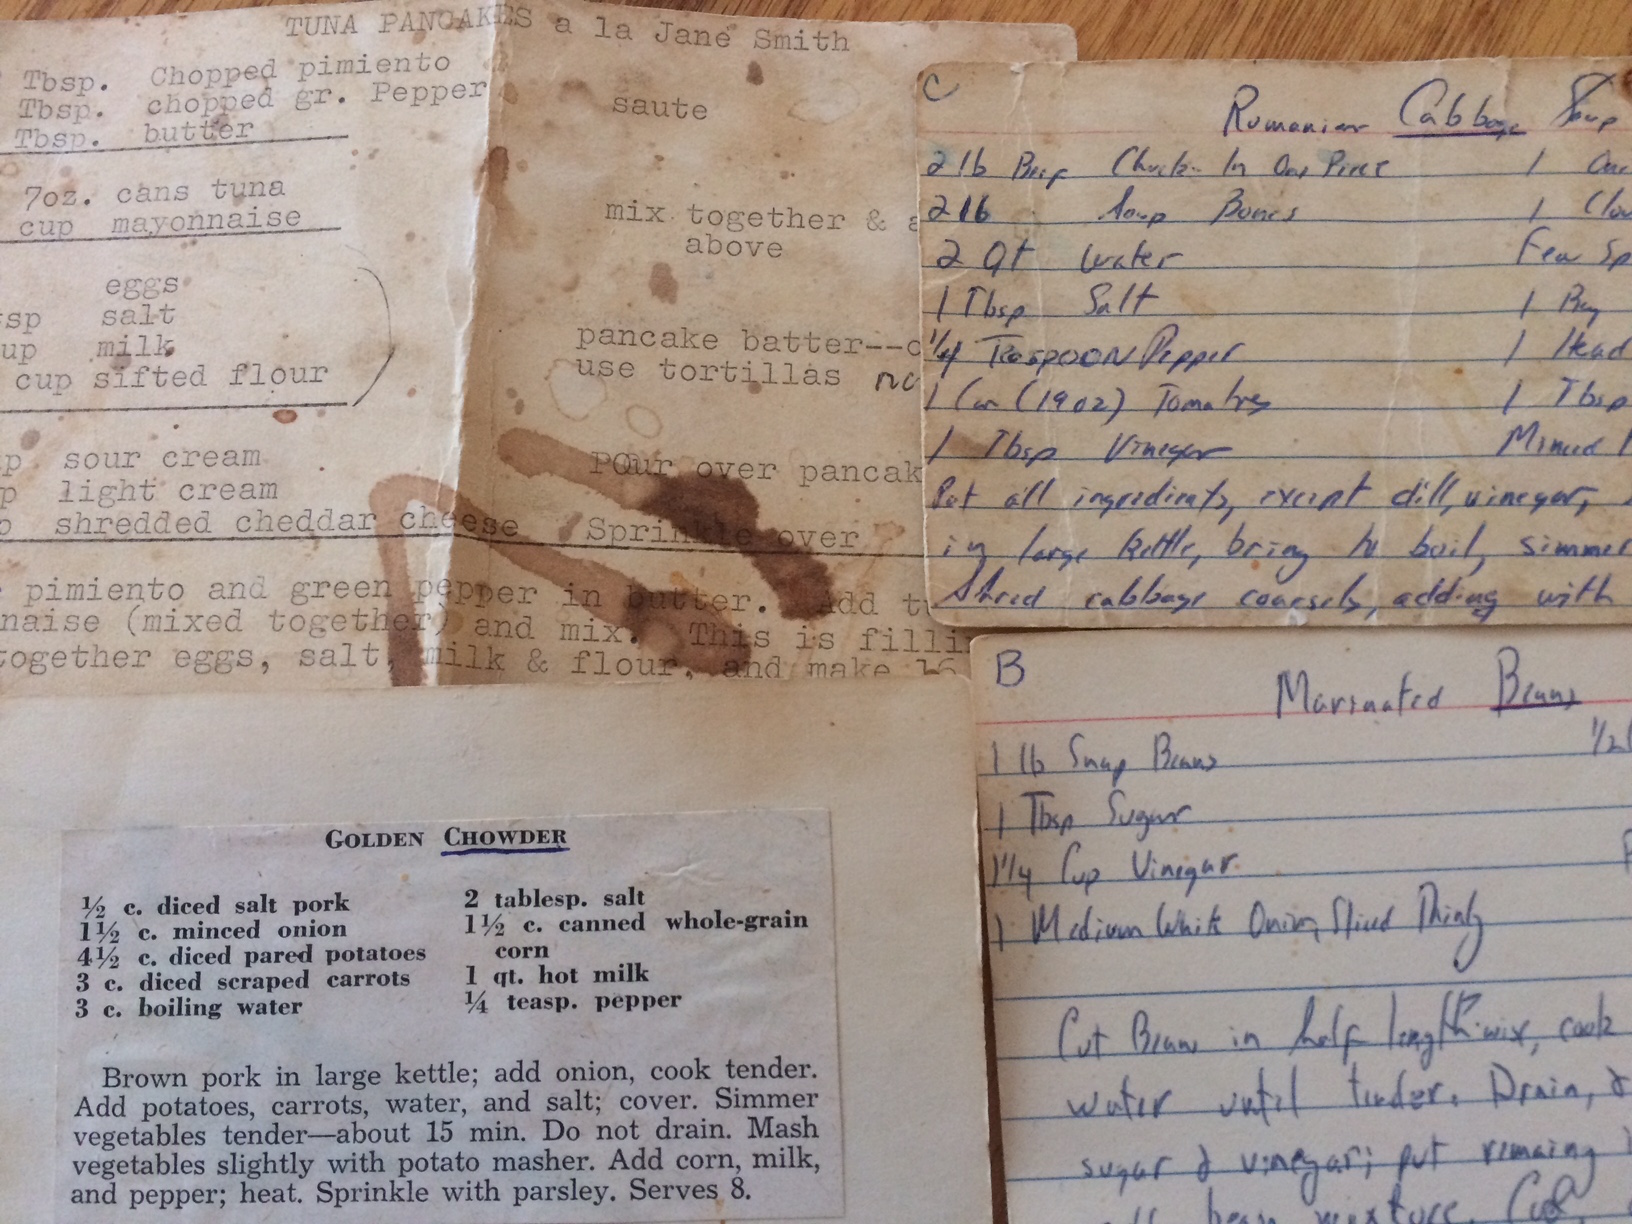 TUNA PANCAKES a la Jane Smith
Tbsp. Chopped pimiento
Tbsp. chopped gr. Pepper
saute
Tbsp. butter
7oz. cans tuna
mix together &
cup mayonnaise
above
eggs
salt
pancake batter--
milk
use tortillas
cup sifted flour
sour cream
Pour over pancak
light cream
shredded cheddar cheese
Sprinkle over
pimiento and green pepper in butter. Add
naise (mixed together) and mix. This is filli
together eggs, salt, milk & flour, and make 16
C
Rumanian Cabbage Soup
2 lb Beef Chuck- In One Piece 1
2 lb Soup Bones 1
2 Qt Water Few
1 Tbsp Salt 1 Bay
1/4 Teaspoon Pepper 1 Head
1 Can (19 oz) Tomatoes 1 Tbsp
1 Tbsp Vinegar Minced
Put all ingredients, except dill, vinegar,
in large kettle, bring to boil, simmer
Shred cabbage coarsely, adding with
B
Marinated Beans
1 lb Snap Beans 1/2
1 Tbsp Sugar
1 1/4 Cup Vinegar
1 Medium White Onion, Sliced Thinly
Cut Beans in half lengthwise, cook
water until tender. Drain, &
sugar & vinegar; put remaing
bean mixture. Cool,
GOLDEN CHOWDER
½ c. diced salt pork
1½ c. minced onion
4½ c. diced pared potatoes
3 c. diced scraped carrots
3 c. boiling water
2 tablesp. salt
1½ c. canned whole-grain
corn
1 qt. hot milk
¼ teasp. pepper
Brown pork in large kettle; add onion, cook tender.
Add potatoes, carrots, water, and salt; cover. Simmer
vegetables tender—about 15 min. Do not drain. Mash
vegetables slightly with potato masher. Add corn, milk,
and pepper; heat. Sprinkle with parsley. Serves 8.